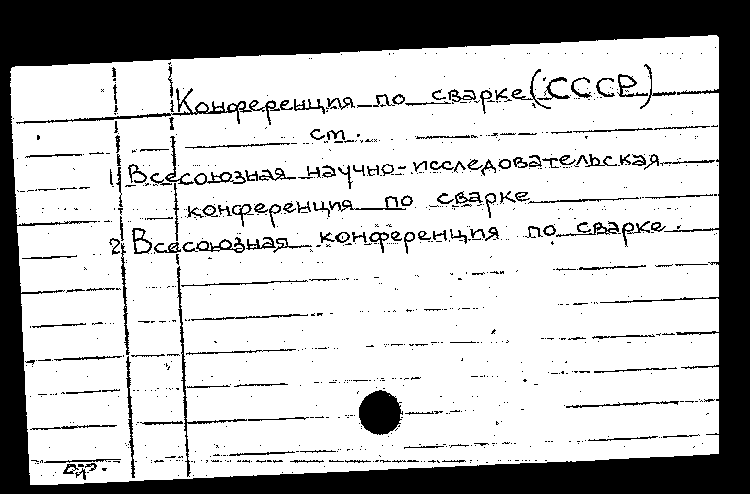 Конференция по сварке (СССР)
см.
1. Всесоюзная научно-исследовательская
конференция по сварке
2. Всесоюзная конференция по сварке.